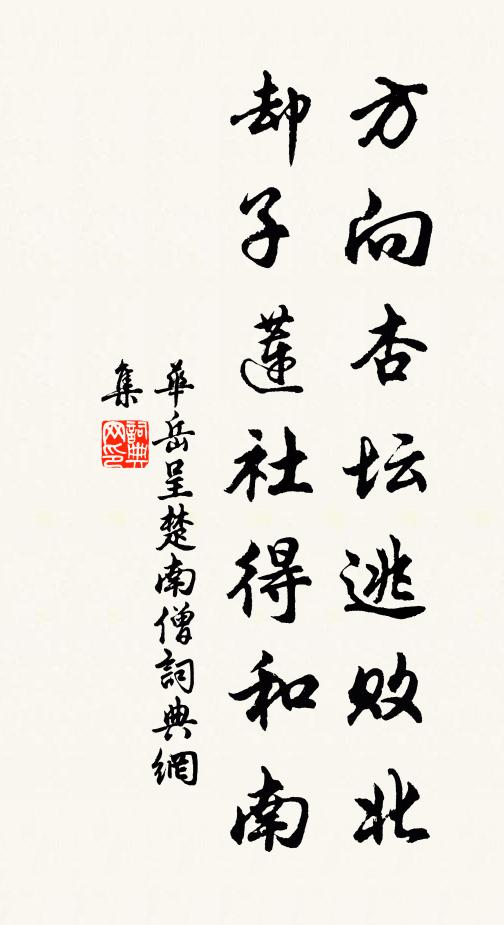 方向杏坛逃败北
却子莲社得和南
華岳呈楚南僧詞典網
集
詞典网印